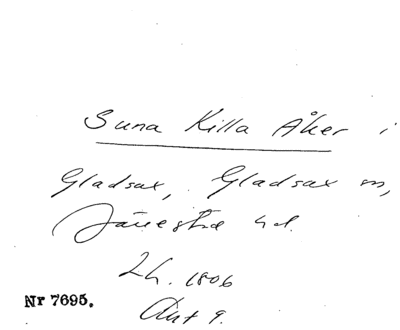 Suna Killa Åker i
Gladsax, Gladsax sn,
Järrestad hd.
LH. 1806
Akt 9.
Nr 7695.